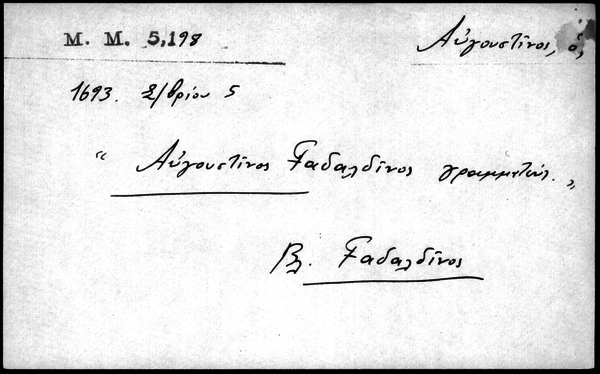 M. M. 5,198
Αὐγουστῖνος, ὁ,
1693. Σ/βρίου 5
“ Αὐγουστῖνος Γαδαλδῖνος γραμματεύς. „
Βλ. Γαδαλδῖνος